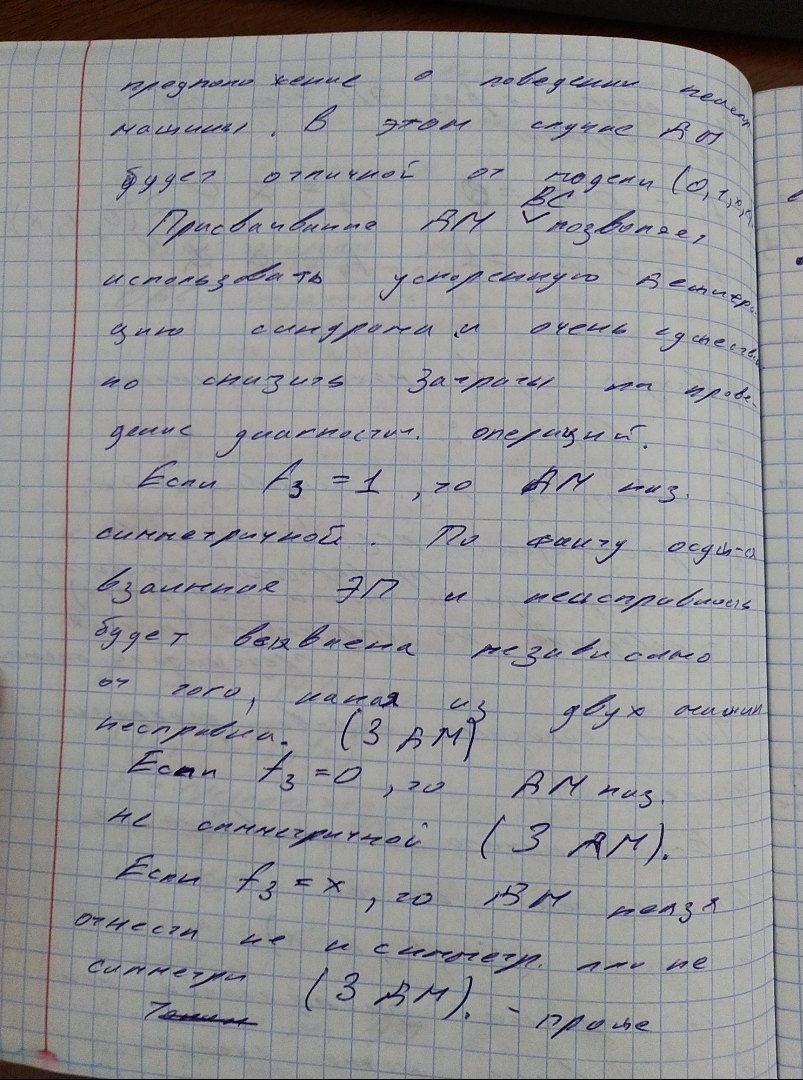 предположение о поведении неиспр
машины. В этом случае ДМ
будет отличной от модели (0,1,
Присваивание ДМ ВС позволяет
использовать ускоренную дешифра-
цию синдрома и очень существен
но снизить затраты на прове-
дение диагностич. операций.
Если f3 = 1, то ДМ наз.
симметричной. По факту осущ-ся
взаимная ЭП и неисправность
будет выявлена независимо
от того, какая из двух машин
несправна. (3 ДМ)
Если f3 = 0, то ДМ наз.
не симметричной (3 ДМ).
Если f3 = x, то ДМ нельзя
отнести не к симметр. или не
симметри (3 ДМ). - проме